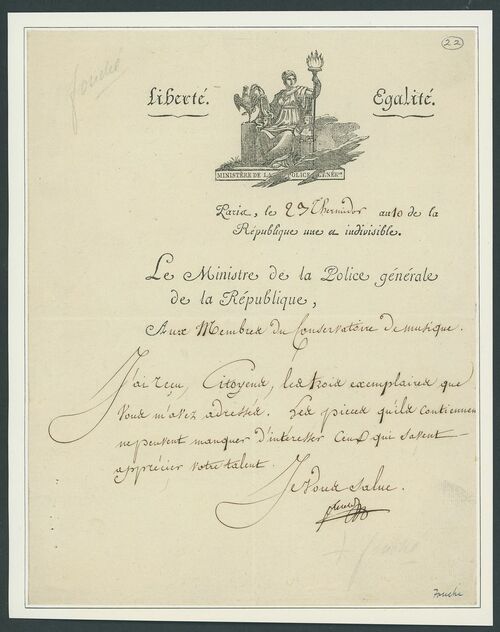 22
fouché
Liberté. Egalité.
MINISTÈRE DE LA POLICE GÉNÉR.le
Paris, le 27 Thermidor an 10 de la
République une et indivisible.
Le Ministre de la Police générale
de la République,
Aux Membres du Conservatoire de musique.
J'ai reçu, Citoyens, les trois exemplaires que
vous m'avez adressés. Les pieces qu'ils contiennent
ne peuvent manquer d'intéresser ceux qui savent
apprécier votre talent.
Je vous salue.
fouché
fouché
Fouché